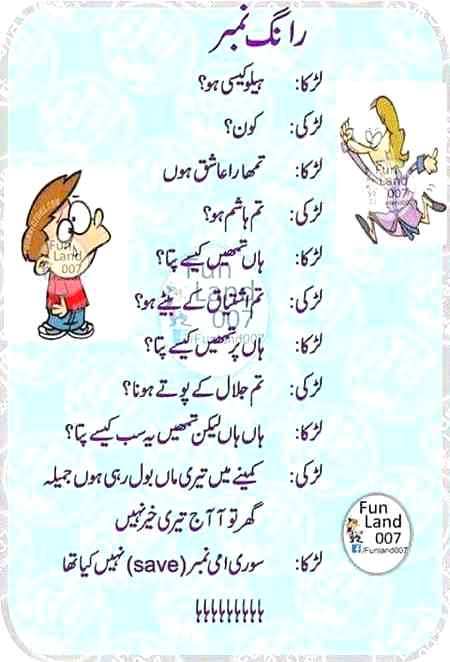 رانگ نمبر
لڑکا: ہیلو کیسی ہو؟
لڑکی: کون؟
لڑکا: تمھارا عاشق ہوں
لڑکی: تم ہاشم ہو؟
لڑکا: ہاں تمھیں کیسے پتا؟
لڑکی: تم اشفاق کے بیٹے ہو؟
لڑکا: ہاں پر تمھیں کیسے پتا؟
لڑکی: تم جلال کے پوتے ہونا؟
لڑکا: ہاں ہاں لیکن تمھیں یہ سب کیسے پتا؟
لڑکی: کمینے میں تیری ماں بول رہی ہوں جمیلہ
گھر تو آ آج تیری خیر نہیں
لڑکا: سوری امی نمبر (save) نہیں کیا تھا
ہاہاہاہاہاہاہاہاہا
Fun
Land
007
Fun
Land
007
Fun
Land
007
/Funland007
Fun
Land
007
/Funland007